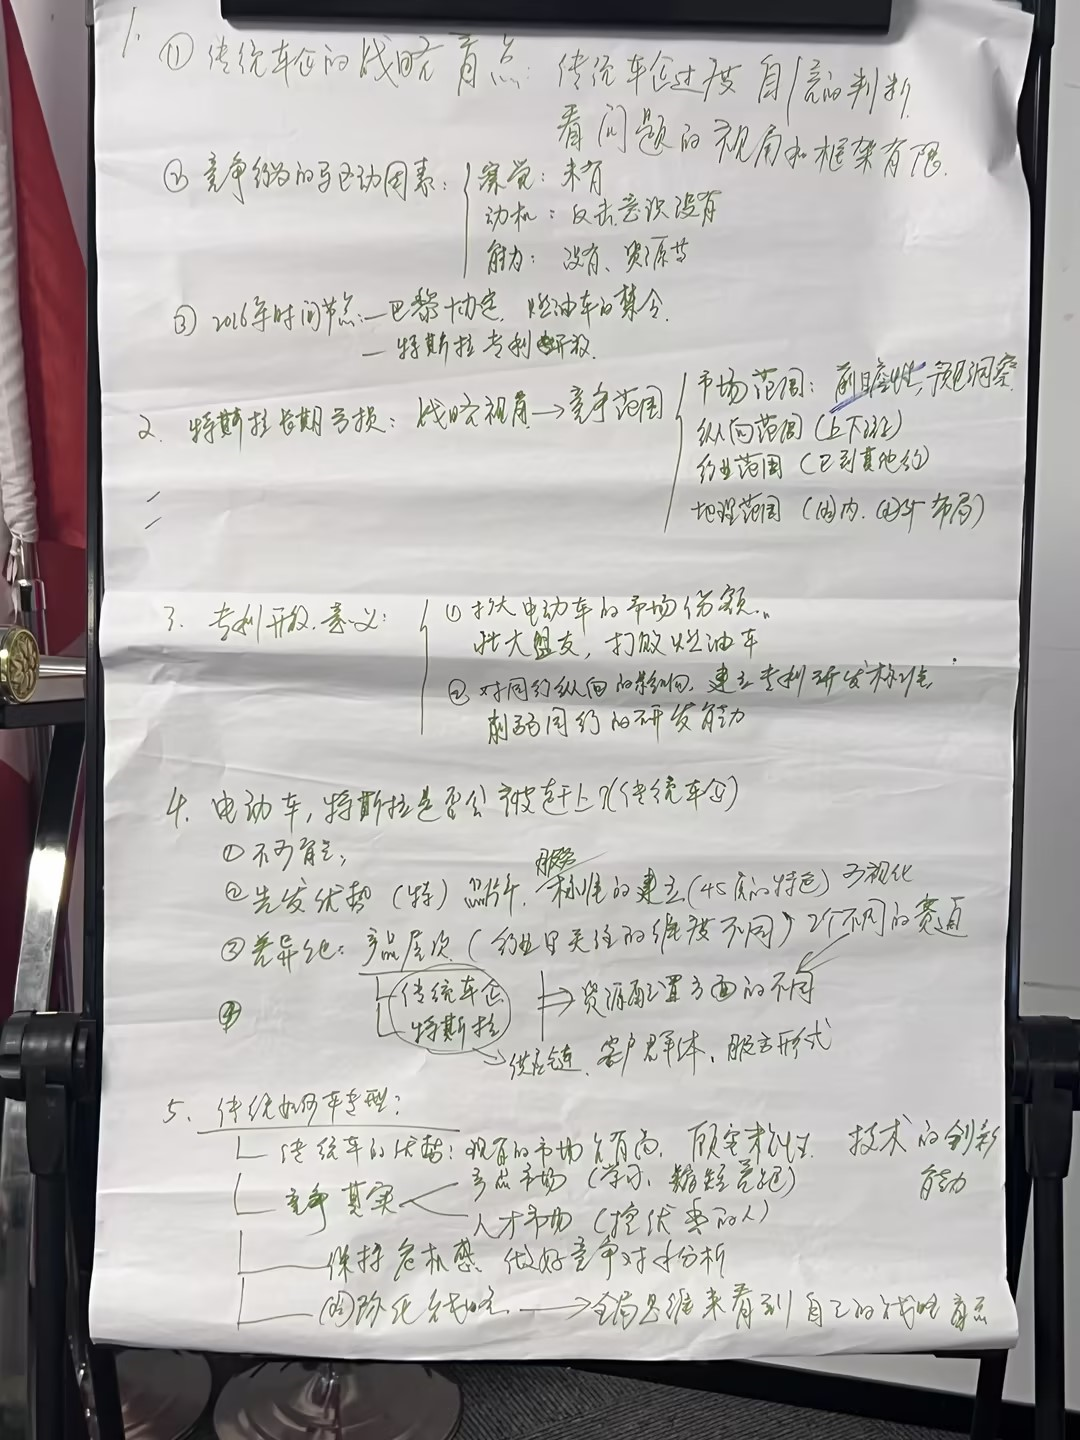 1. ① 传统车企的战略盲点：传统车企过度自信的判断，
看问题的视角和框架有限.
② 竞争行为的驱动因素：察觉：未有
动机：反击意识没有
能力：没有、资源等
③ 2016年时间节点：—巴黎协定. 燃油车的禁令.
—特斯拉专利开放.
2. 特斯拉长期亏损：战略视角→竞争范围 市场范围：前瞻性,预见洞察
纵向范围（上下游）
行业范围（已到其他行）
地理范围（国内.国外布局）
3. 专利开放意义：① 扩大电动车的市场份额.
壮大盟友，打败燃油车
② 对同行纵向的影响，建立专利研发标准，
削弱同行的研发能力
4. 电动车，特斯拉是否会被赶上？（传统车企）
① 不可盲
② 先发优势（特） 服务 标准的建立（4S店的特色）可视化
③ 差异化：产品层次（行业里关注的维度不同）2个不同的赛道
④ 传统车企 ⇒资源配置方面的不同
特斯拉
供应链、客户群体、服务形式
5. 传统如何车转型：
传统车的优势：现有的市场占有高、顾客粘性. 技术的创新
能力
竞争其实 产品市场（学习、缩短差距）
人才市场（挖优秀的人）
保持危机感 做好竞争对手分析
国际化战略 →全局思维来看到自己的战略盲点